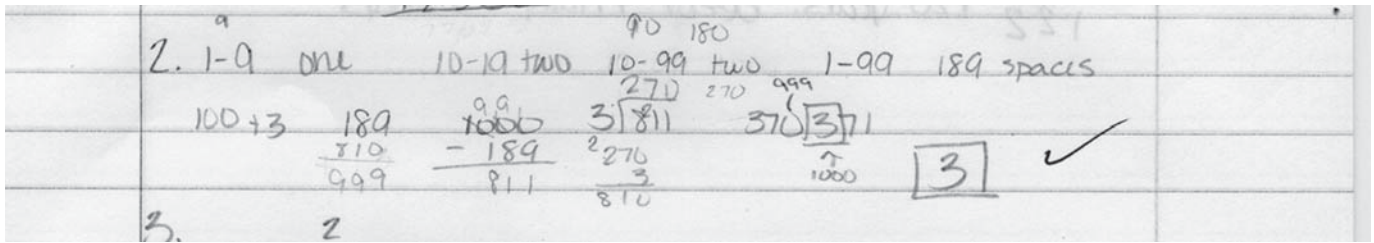 9 90 180
2. 1-9 one 10-19 two 10-99 two 1-99 189 spaces
270 270 999
100+3 189 1000 3)811 370 3 71
99
810 - 189 2 270 1000 3 ✓
999 811 3
810
3. 2